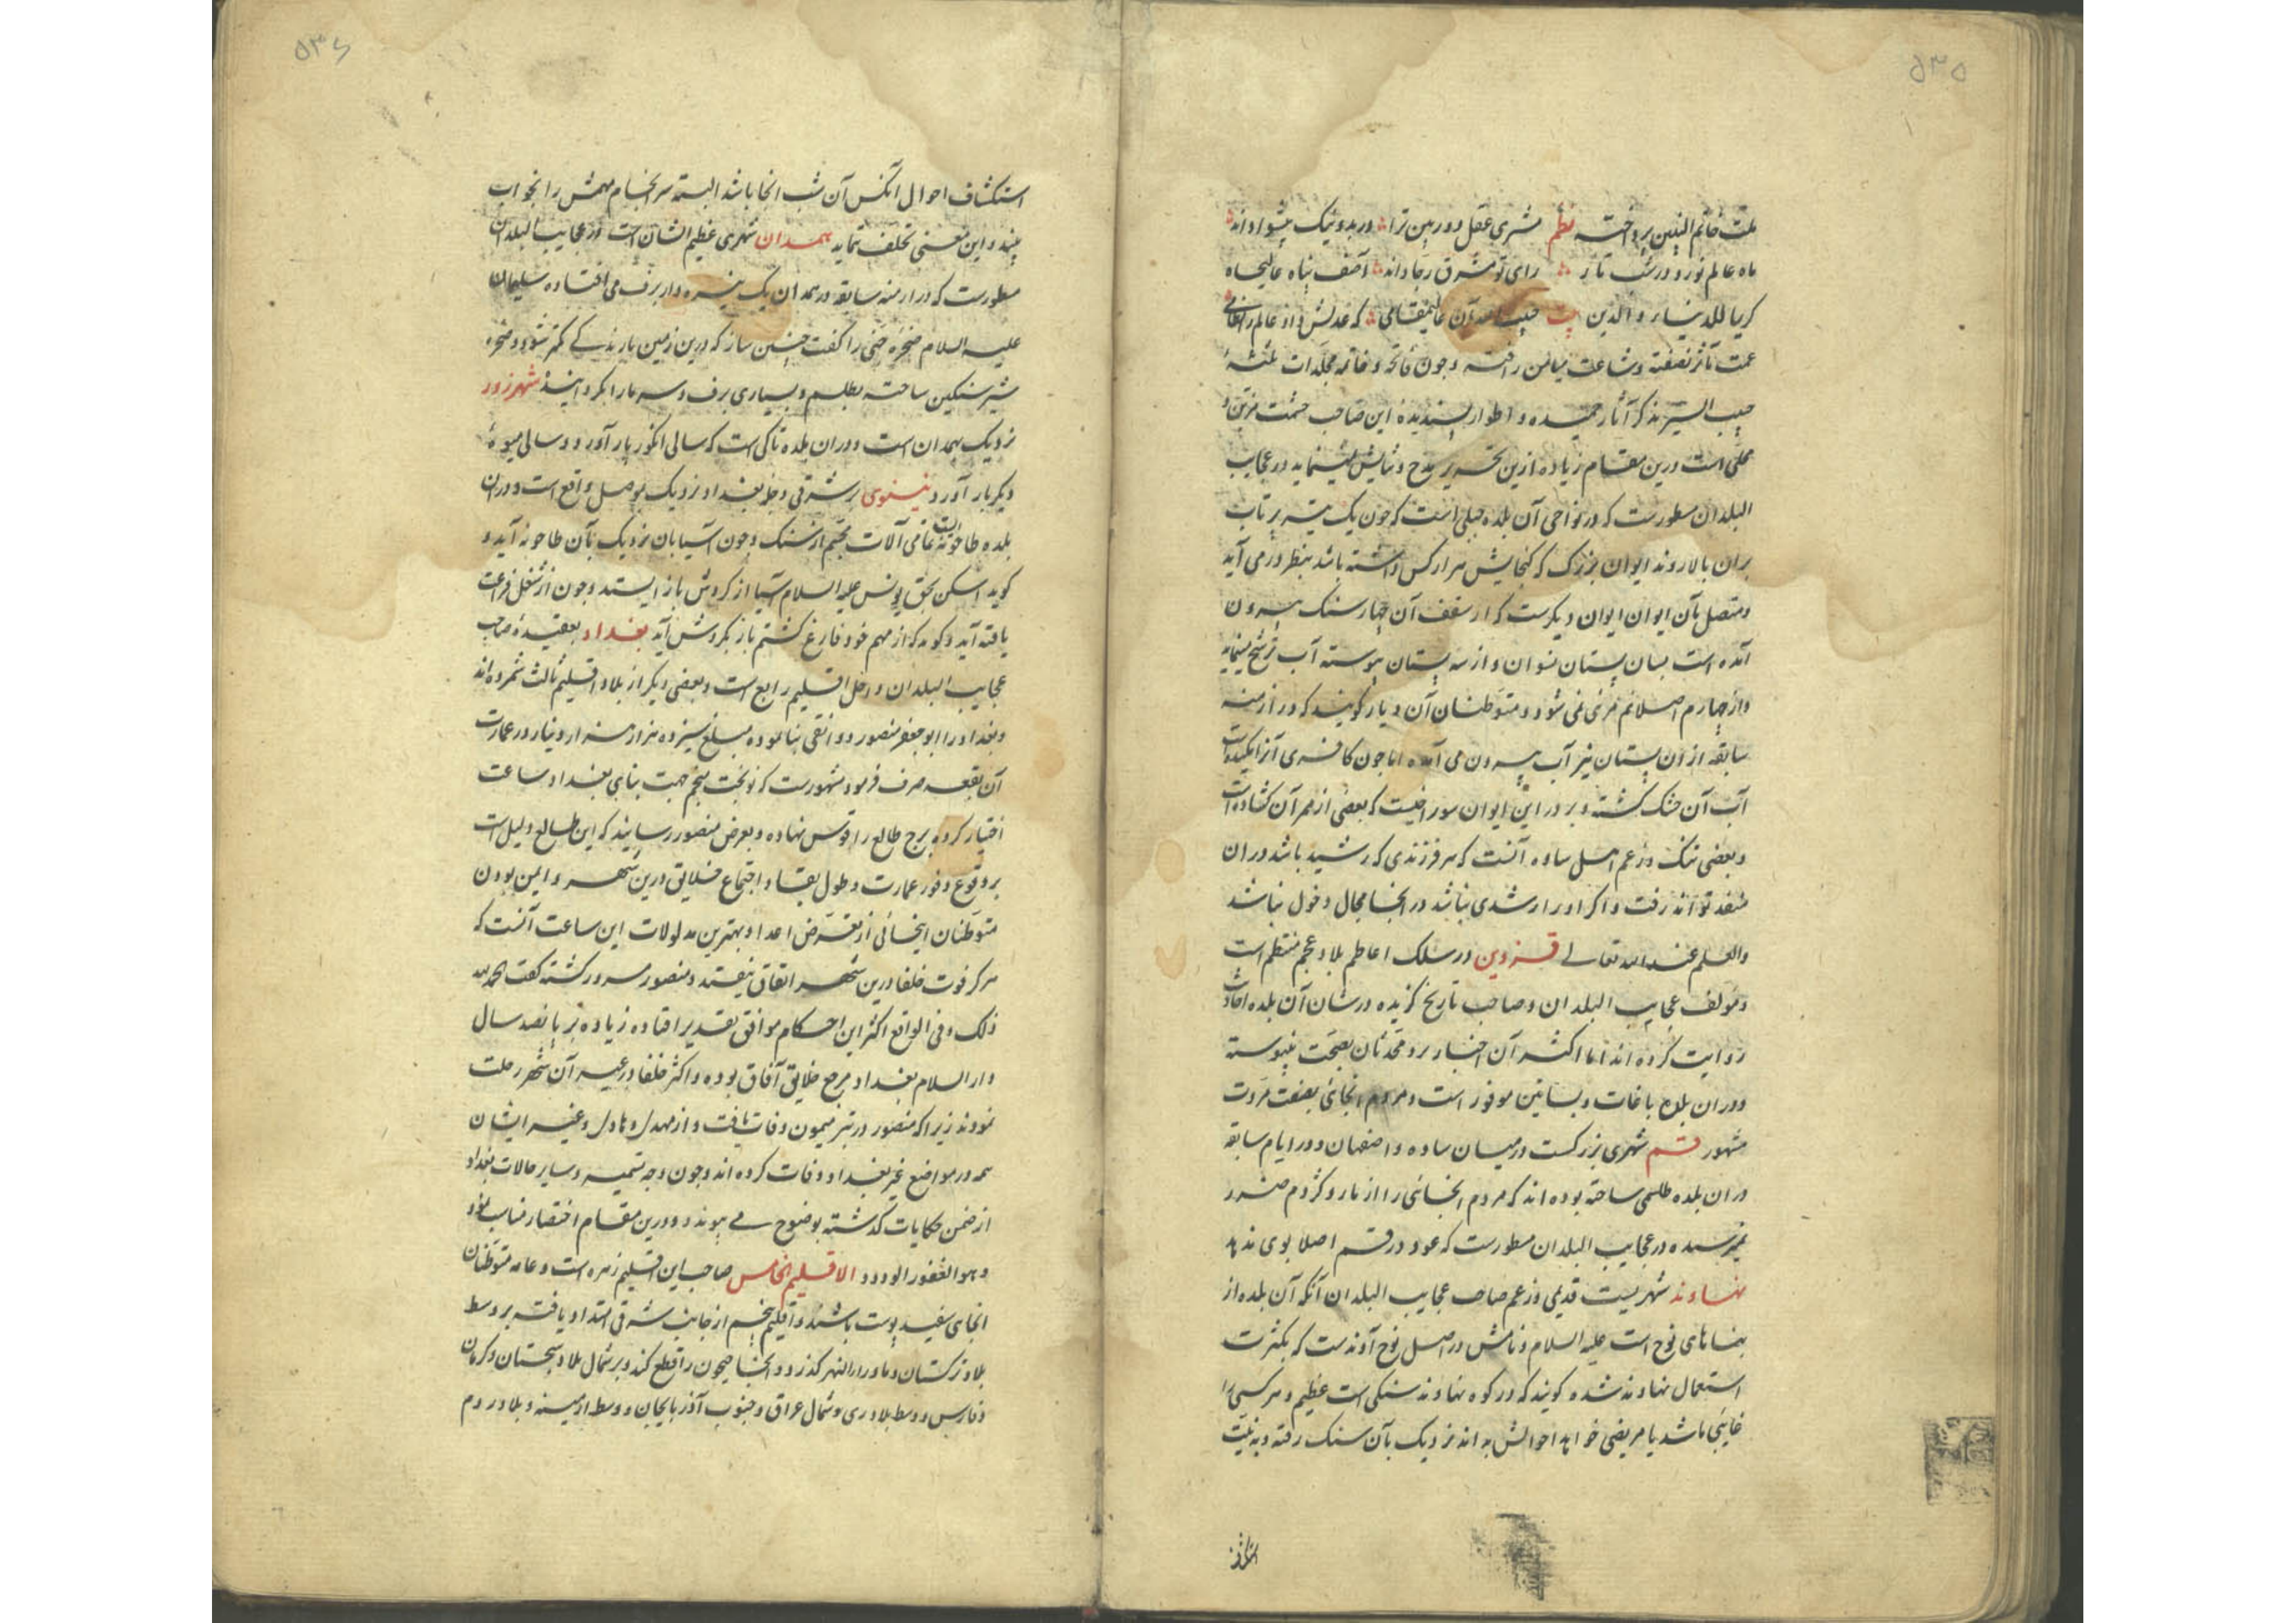 ۵۳۵
ملت خاتم النبیین پرداخته نظم مشتری عقل دوربین ترا در بد و نیک پیشوا داند
ماه عالم نورد در شب تار رای تو مشرق رجا داند آصف پناه عالیجاه
کریما للدنیا و الدین بیت حبیب الله آن عالیمقامی که عدلش داد عالم را نظامی
عمت مآثر نصفته و شاعت میامن رافته و چون فاتحه و خاتمه مجلدات ثلثهٔ
حبیب السیر بذکر آثار حمیده و اطوار پسندیدهٔ این صاحب حشمت مزین و
محلی است درین مقام زیاده ازین تحریر مدح و ثنایش نمینماید در عجایب
البلدان مسطورست که در نواحی آن بلده جبلی است که چون یک تیر پرتاب
بران بالا روند ایوان بزرک که کنجایش هزار کس داشته باشد بنظر در می آید
و متصل بآن ایوان ایوان دیکرست که از سقف آن چهار سنک بیرون
آمده است بسان پستان نسوان و از سه پستان پیوسته آب ترشح مینماید
و از چهارم اصلا نم مرئی نمی شود و متوطنان آن دیار کویند که در ازمنه
سابقه ازان پستان نیز آب بیرون می آمده اما چون کافری آنرا مکیده است
آب آن خشک کشته و بر در این ایوان سوراخیست که بعضی از ممر آن کشاده است
و بعضی تنک و زعم اهل ساوه آنست که هر فرزندی که رشید باشد دران
منفذ تواند رفت و اکر او را رشدی نباشد در انجا مجال دخول نباشد
والعلم عند الله تعالی قزوین در سلک اعاظم بلاد عجم منتظم است
و مولف عجایب البلدان و صاحب تاریخ کزیده در شان آن بلده احادیث
روایت کرده اند اما اکثر آن اخبار نزد محدثان بصحت نپیوسته
و دران بلده باغات و بساتین موفور است و مردم انجائی بصفت مروت
مشهور قم شهری بزرکست در میان ساوه و اصفهان و در ایام سابقه
دران بلده طلسمی ساخته بوده اند که مردم انجائی را از مار و کژدم ضرر
نمیرسیده در عجایب البلدان مسطورست که عود در قم اصلا بوی ندهد
نهاوند شهریست قدیمی و زعم صاحب عجایب البلدان آنکه آن بلده از
بناهای نوح است علیه السلام و نامش در اصل نوح آوند است که بکثرت
استعمال نهاوند شده کویند که در کوه نهاوند سنکی است عظیم و هر کسی را
غایبی باشد یا مریضی خواهد احوالش بداند نزدیک بآن سنک رفته و به نیت
۵۳۶
استکشاف احوال آنکس آن شب انجا باشد البته سرانجام مهمش را بخواب
بیند و این معنی تخلف ننماید همدان شهری عظیم الشان است و در عجایب البلدان
مسطورست که در ازمنه سابقه در همدان یک نیزه وار برف می افتاده سلیمان
علیه السلام صخره جنی را کفت چنین ساز که درین زمین بارندکی کمتر شود و صخره
شیر سنکین ساخته بطلسم و بسیاری برف و سرما را بکردانید شهرزور
نزدیک بهمدان است و دران بلده تاکی است که سالی انکور بار آورد و سالی میوهٔ
دیکر بار آورد نینوی بر شرقی دجله بغداد نزدیک بموصل واقع است و دران
بلده طاحونه ایست تمامی آلات مجسم از سنک و چون آسیابان نزدیک بآن طاحونه آید و
کوید اسکن بحق یونس علیه السلام آسیا از کردش باز ایستد و چون از شغل فراغت
یافته آید و کوید که از مهم خود فارغ کشتم باز بکردش آید بغداد بعقیدهٔ صاحب
عجایب البلدان داخل اقلیم رابع است و بعضی دیکر از بلاد اقلیم ثالث شمرده اند
و بغداد را ابو جعفر منصور دوانقی بنا نموده مبلغ سیزده هزار هزار دینار در عمارت
آن بقعه صرف فرمود مشهورست که نوبخت منجم جهت بنای بغداد ساعت
اختیار کرده برج طالع را قوس نهاده و بعرض منصور رسانید که این طالع دلیل است
بر وقوع وفور عمارت و طول بقا و اجتماع خلایق درین شهر و ایمن بودن
متوطنان اینجائی از تعرض اعدا و بهترین مدلولات این ساعت آنست که
هرکز فوت خلفا درین شهر اتفاق نیفتد و منصور مسرور کشته کفت الحمد لله
ذلک و فی الواقع اکثر این احکام موافق تقدیر افتاده زیاده بر پانصد سال
دار السلام بغداد مرجع خلایق آفاق بوده و اکثر خلفا در غیر آن شهر رحلت
نمودند زیرا که منصور در بئر میمون وفات یافت و از مهدی و هادی و غیر ایشان
همه در مواضع غیر بغداد وفات کرده اند و چون وجه تسمیه و سایر حالات بغداد
از ضمن حکایات کذشته بوضوح می پیوندد درین مقام اختصار مناسب نمود
و هو الغفور الودود الاقلیم الخامس صاحب این اقلیم زهره است و عامه متوطنان
انجای سفید پوست باشند و اقلیم پنجم از جانب شرقی امتداد یافته بر وسط
بلاد ترکستان و ماوراء النهر کذرد و انجا جیحون را قطع کند و بر شمال بلاد سجستان و کرمان
و فارس و وسط بلاد ری و شمال عراق و جنوب آذربایجان و وسط ارمینه و بلاد روم